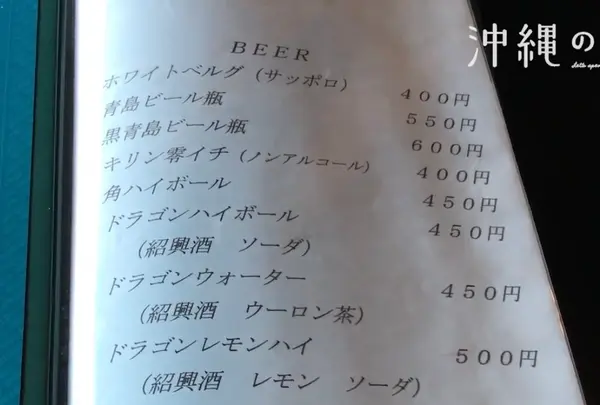 沖縄の
BEER
ホワイトベルグ（サッポロ） 400円
青島ビール瓶 550円
黒青島ビール瓶 600円
キリン零イチ（ノンアルコール） 400円
角ハイボール 450円
ドラゴンハイボール 450円
（紹興酒　ソーダ）
ドラゴンウォーター 450円
（紹興酒　ウーロン茶）
ドラゴンレモンハイ 500円
（紹興酒　レモン　ソーダ）